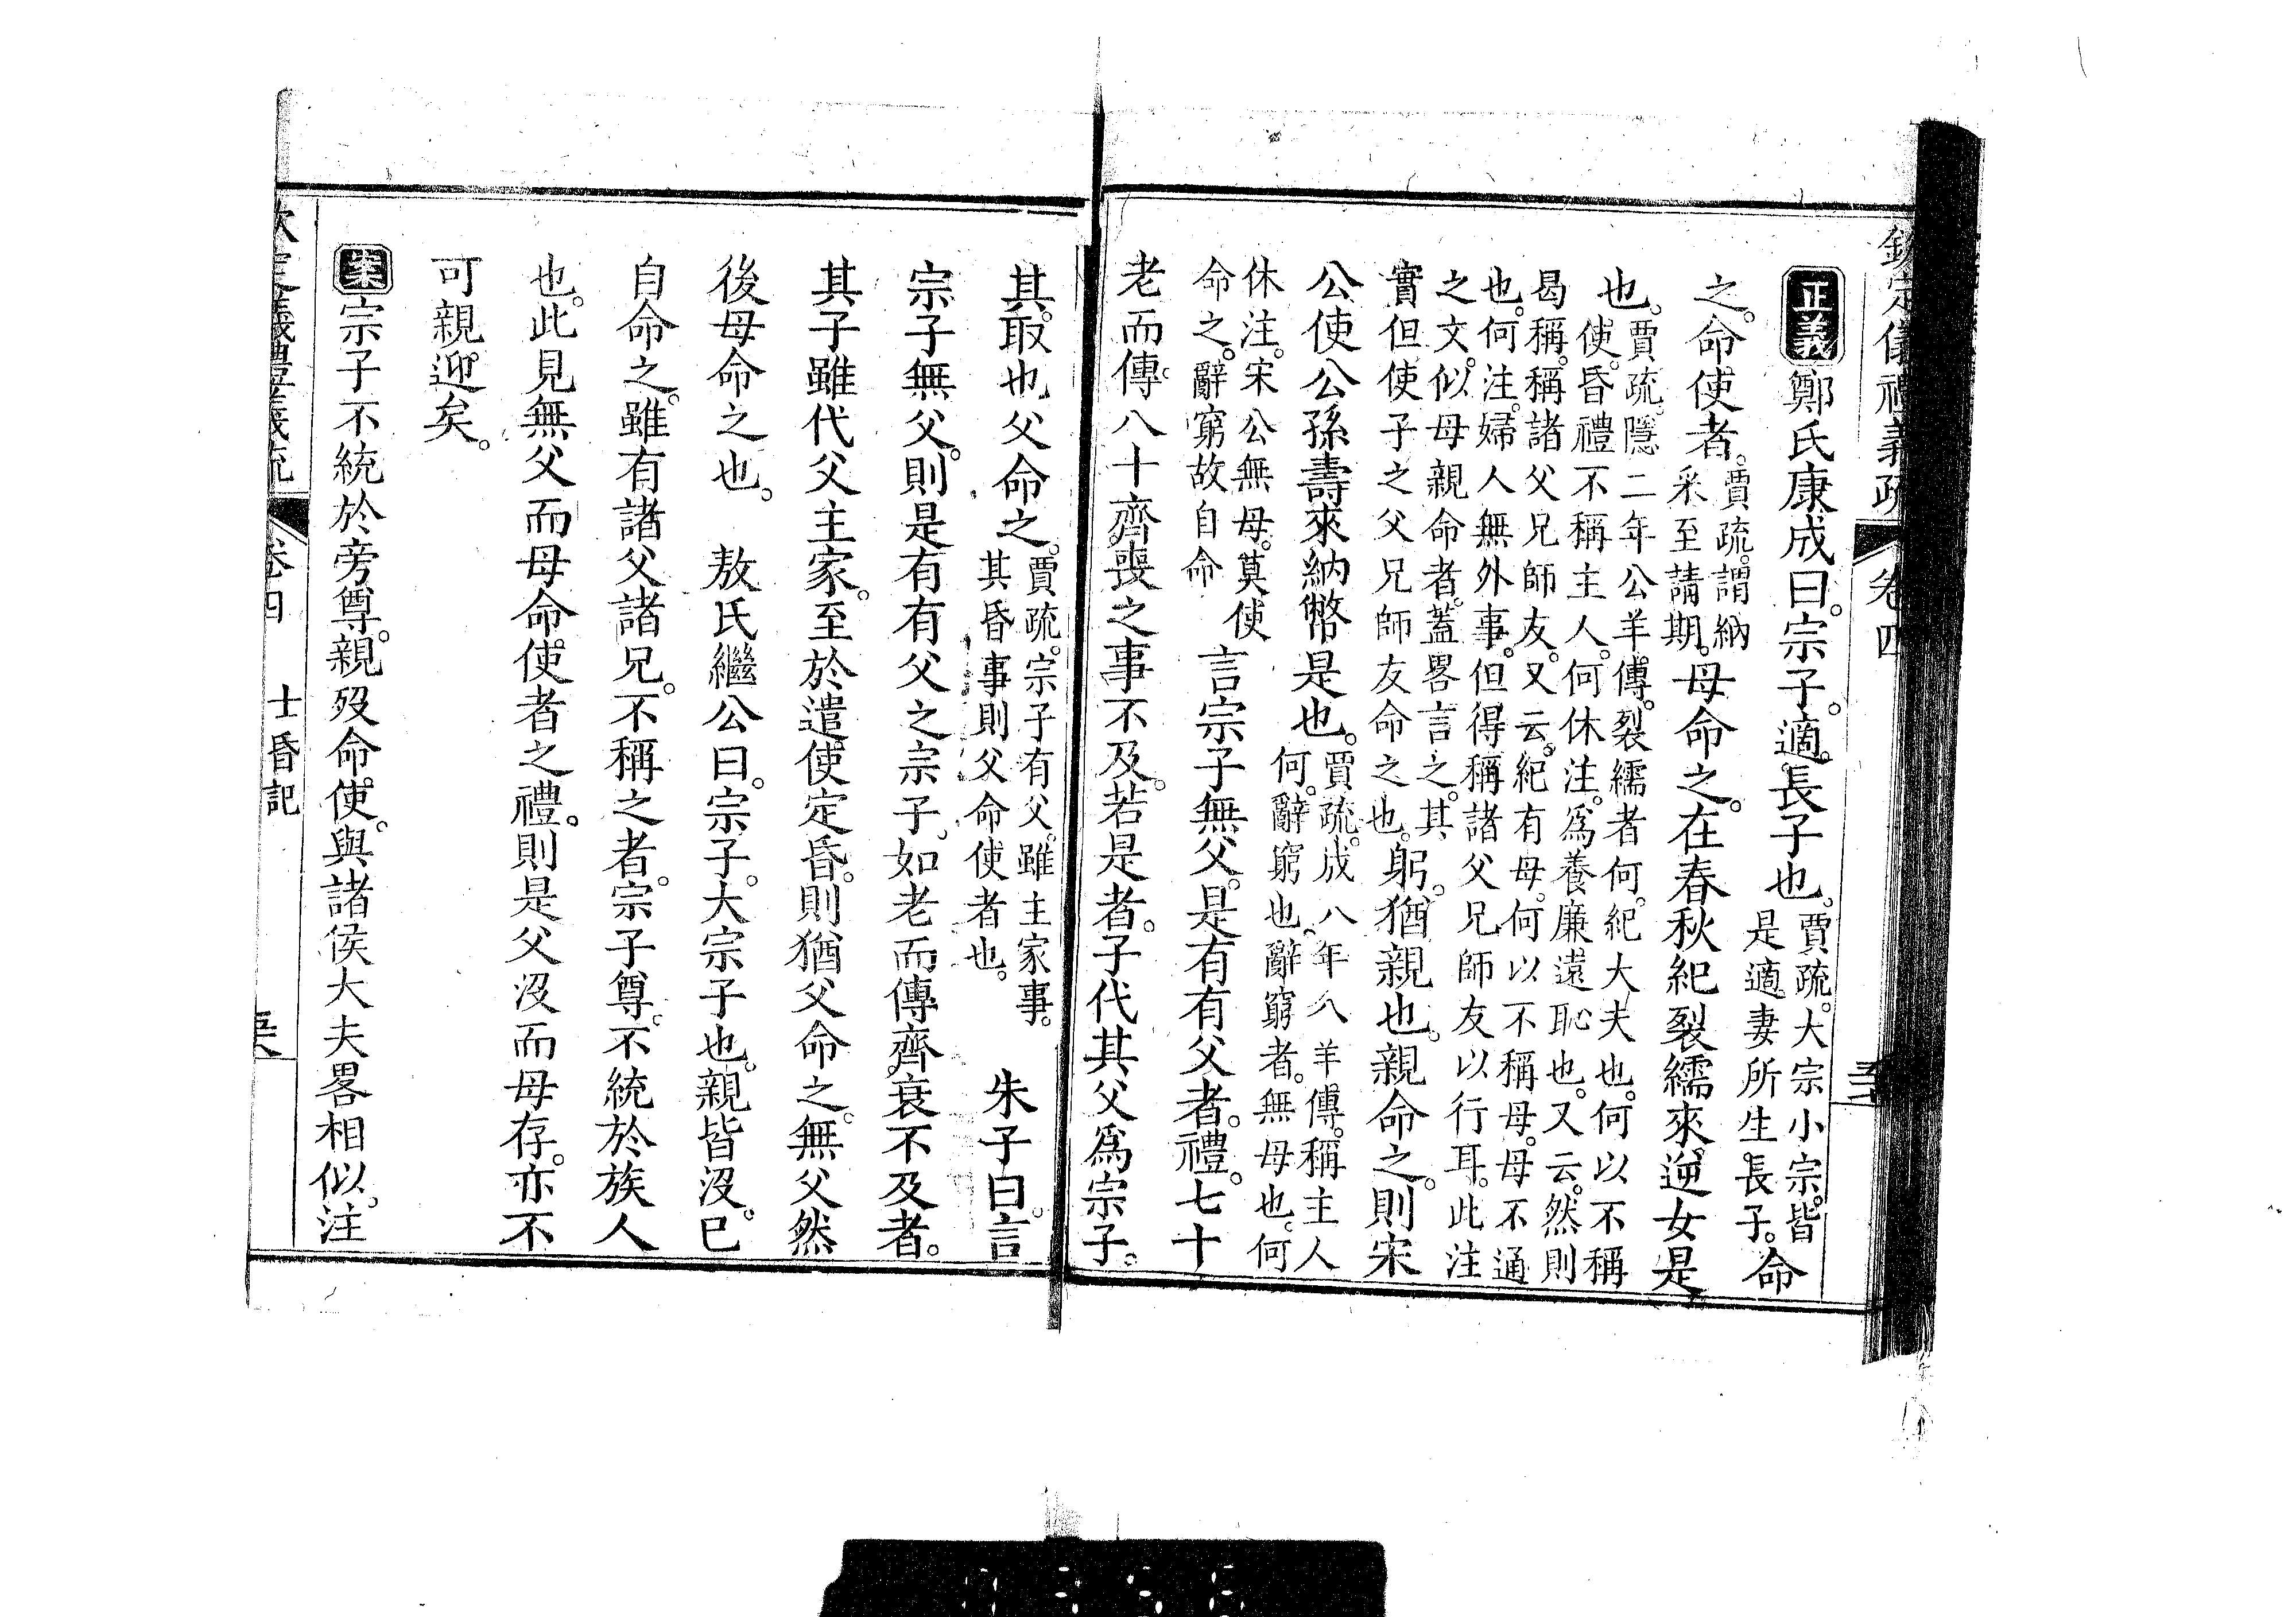 欽定儀禮義疏 卷四
正義鄭氏康成曰。宗子。適。長子也。賈疏。大宗小宗。皆是適妻所生。長子。命
之。命使者。賈疏。謂納采至請期。母命之。在春秋紀裂繻來逆女是
也。賈疏。隱二年公羊傳。裂繻者何。紀大夫也。何以不稱使。昏禮不稱主人。何休注。為養廉遠恥也。又云。然則
曷稱。稱諸父兄師友。又云。紀有母。何以不稱母。母不通也。何注。婦人無外事。但得稱諸父兄師友以行耳。此注
之文。似母親命者。蓋畧言之。其實但使子之父兄師友命之也。躬。猶親也。親命之。則宋
公使公孫壽來納幣是也。賈疏。成八年公羊傳。稱主人何。辭窮也。辭窮者。無母也。何
休注。宋公無母。莫使命之。辭窮故自命 言宗子無父。是有有父者。禮。七十
老而傳。八十齊喪之事不及。若是者。子代其父爲宗子。
其取也父命之。賈疏。宗子有父。雖主家事。其昏事則父命使者也。 朱子曰。言
宗子無父。則是有有父之宗子。如老而傳。齊衰不及者。
其子雖代父主家。至於遣使定昏。則猶父命之。無父然
後母命之也。 敖氏繼公曰。宗子。大宗子也。親皆沒。已
自命之。雖有諸父諸兄。不稱之者。宗子尊。不統於族人
也。此見無父而母命使者之禮。則是父沒而母存。亦不
可親迎矣。
案宗子不統於旁尊。親歿命使。與諸侯大夫畧相似。注
欽定儀禮義疏 卷四 士昏記